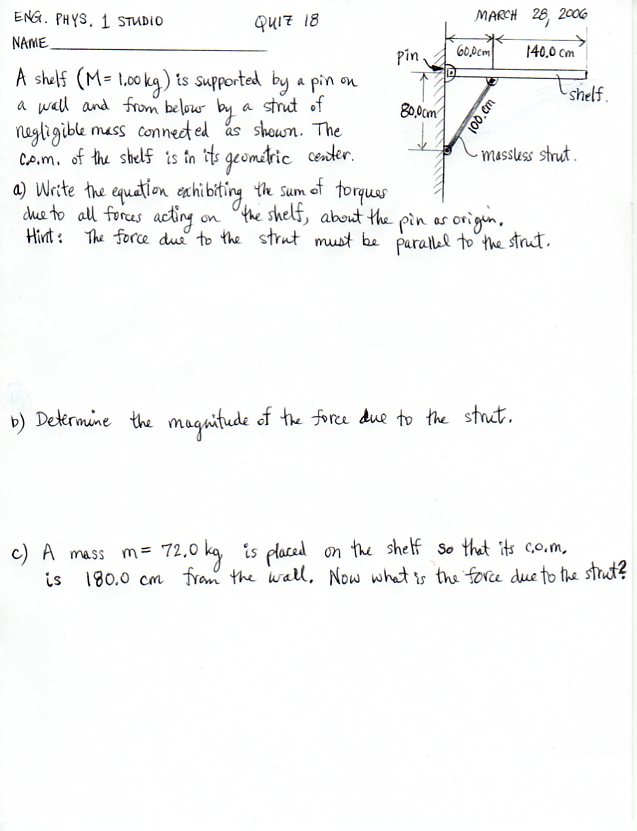 ENG. PHYS. 1 STUDIO QUIZ 18 MARCH 28, 2006
NAME
pin
60.0cm
140.0 cm
80.0cm
100. cm
shelf.
massless strut.
A shelf (M= 1.00 kg) is supported by a pin on
a wall and from below by a strut of
negligible mass connected as shown. The
c.o.m. of the shelf is in its geometric center.
a) Write the equation exhibiting the sum of torques
due to all forces acting on the shelf, about the pin as origin.
Hint: The force due to the strut must be parallel to the strut.
b) Determine the magnitude of the force due to the strut.
c) A mass m= 72.0 kg is placed on the shelf so that its c.o.m.
is 180.0 cm from the wall. Now what is the force due to the strut?